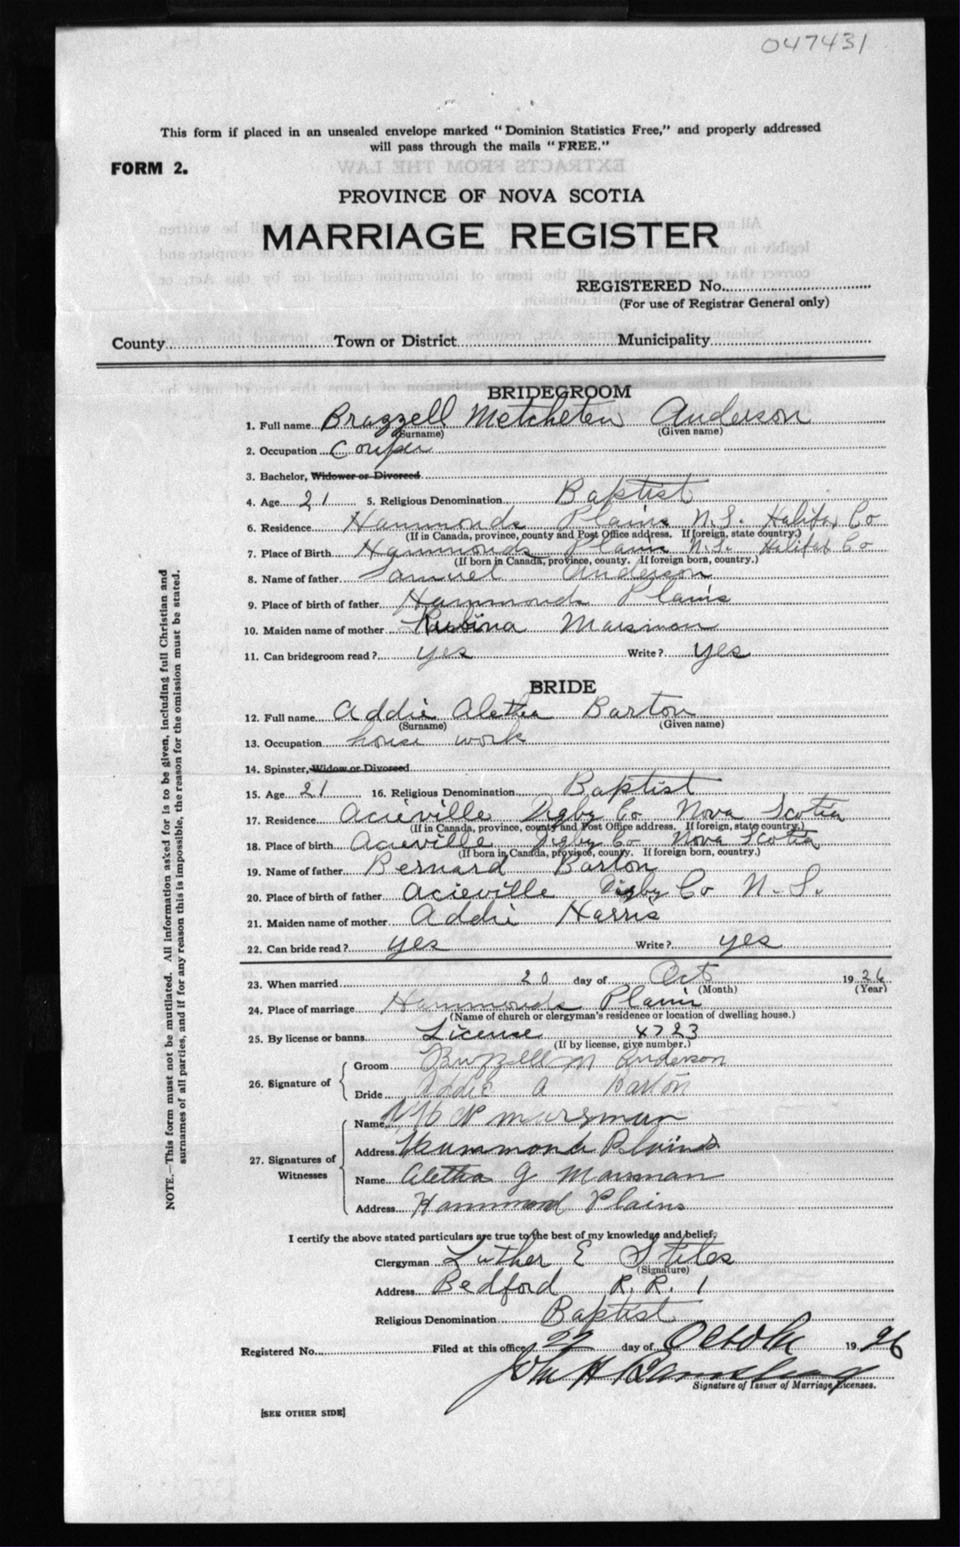 047431
This form if placed in an unsealed envelope marked "Dominion Statistics Free," and properly addressed
will pass through the mails "FREE."
FORM 2.
PROVINCE OF NOVA SCOTIA
MARRIAGE REGISTER
REGISTERED No.
(For use of Registrar General only)
County Town or District Municipality
BRIDEGROOM
1. Full name Brazzell Metcheten Anderson
(Surname) (Given name)
2. Occupation Couper
3. Bachelor, Widower or Divorced
4. Age 21 5. Religious Denomination Baptist
6. Residence Hammonds Plains N.S. Halifax Co
(If in Canada, province, county and Post Office address. If foreign, state country.)
7. Place of Birth Hammonds Plains N.S. Halifax Co
(If born in Canada, province, county. If foreign born, country.)
8. Name of father Samuel Anderson
9. Place of birth of father Hammonds Plains
10. Maiden name of mother Marsman
11. Can bridegroom read? yes Write? yes
BRIDE
12. Full name Addie Aletha Barton
(Surname) (Given name)
13. Occupation house work
14. Spinster, Widow or Divorced
15. Age 21 16. Religious Denomination Baptist
17. Residence Acieville Digby Co Nova Scotia
(If in Canada, province, county and Post Office address. If foreign, state country.)
18. Place of birth Acieville Digby Co Nova Scotia
(If born in Canada, province, county. If foreign born, country.)
19. Name of father Bernard Barton
20. Place of birth of father Acieville Digby Co N.S.
21. Maiden name of mother Addie Harris
22. Can bride read? yes Write? yes
23. When married 20 day of Oct 1926
(Month) (Year)
24. Place of marriage Hammonds Plains
(Name of church or clergyman's residence or location of dwelling house.)
25. By license or banns License 4723
(If by license, give number.)
26. Signature of
Groom Buzzell M Anderson
Bride Addie A Barton
27. Signatures of Witnesses
Name Marsman
Address Hammonds Plains
Name Aletha G Marsman
Address Hammond Plains
I certify the above stated particulars are true to the best of my knowledge and belief:
Clergyman Luther E Stiles
(Signature)
Address Bedford R.R. 1
Religious Denomination Baptist
Registered No. Filed at this office 22 day of October 1926
John H
Signature of Issuer of Marriage Licenses.
[SEE OTHER SIDE]
NOTE.—This form must not be mutilated. All information asked for is to be given, including full Christian and
surnames of all parties, and if for any reason this is impossible, the reason for the omission must be stated.